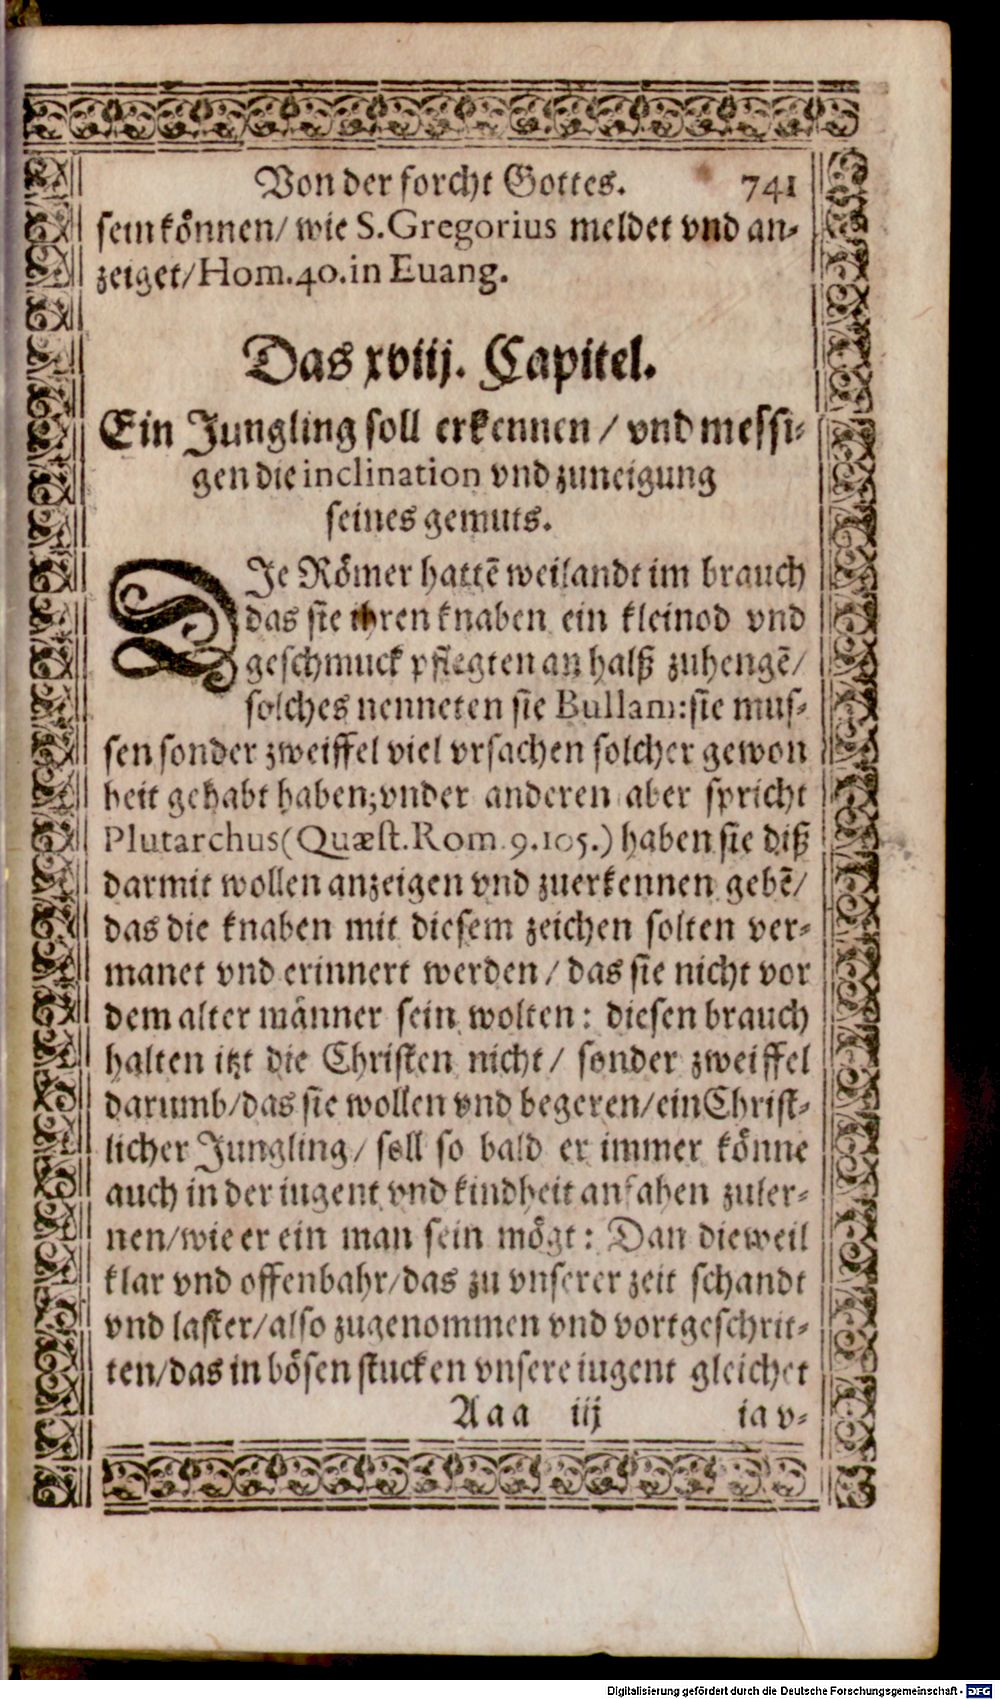 Von der forcht Gottes. 741
sein können/ wie S. Gregorius meldet vnd an-
zeiget/ Hom. 40. in Euang.
Das xviij. Capitel.
Ein Jungling soll erkennen / vnd messi-
gen die inclination vnd zuneigung
seines gemuts.
DIe Römer hattē weilandt im brauch
das sie ihren knaben ein kleinod vnd
geschmuck pflegten an halß zuhengē/
solches nenneten sie Bullam: sie mus-
sen sonder zweiffel viel vrsachen solcher gewon
heit gehabt haben; vnder anderen aber spricht
Plutarchus (Quæst. Rom. 9. 105.) haben sie diß
darmit wollen anzeigen vnd zuerkennen gebē/
das die knaben mit diesem zeichen solten ver-
manet vnd erinnert werden / das sie nicht vor
dem alter männer sein wolten : diesen brauch
halten itzt die Christen nicht / sonder zweiffel
darumb/ das sie wollen vnd begeren/ ein Christ-
licher Jungling / soll so bald er immer könne
auch in der iugent vnd kindheit anfahen zuler-
nen/ wie er ein man sein mögt : Dan dieweil
klar vnd offenbahr/ das zu vnserer zeit schandt
vnd laster/ also zugenommen vnd vortgeschrit-
ten/ das in bösen stucken vnsere iugent gleichet
Aaa iij ia v-
Digitalisierung gefördert durch die Deutsche Forschungsgemeinschaft - DFG